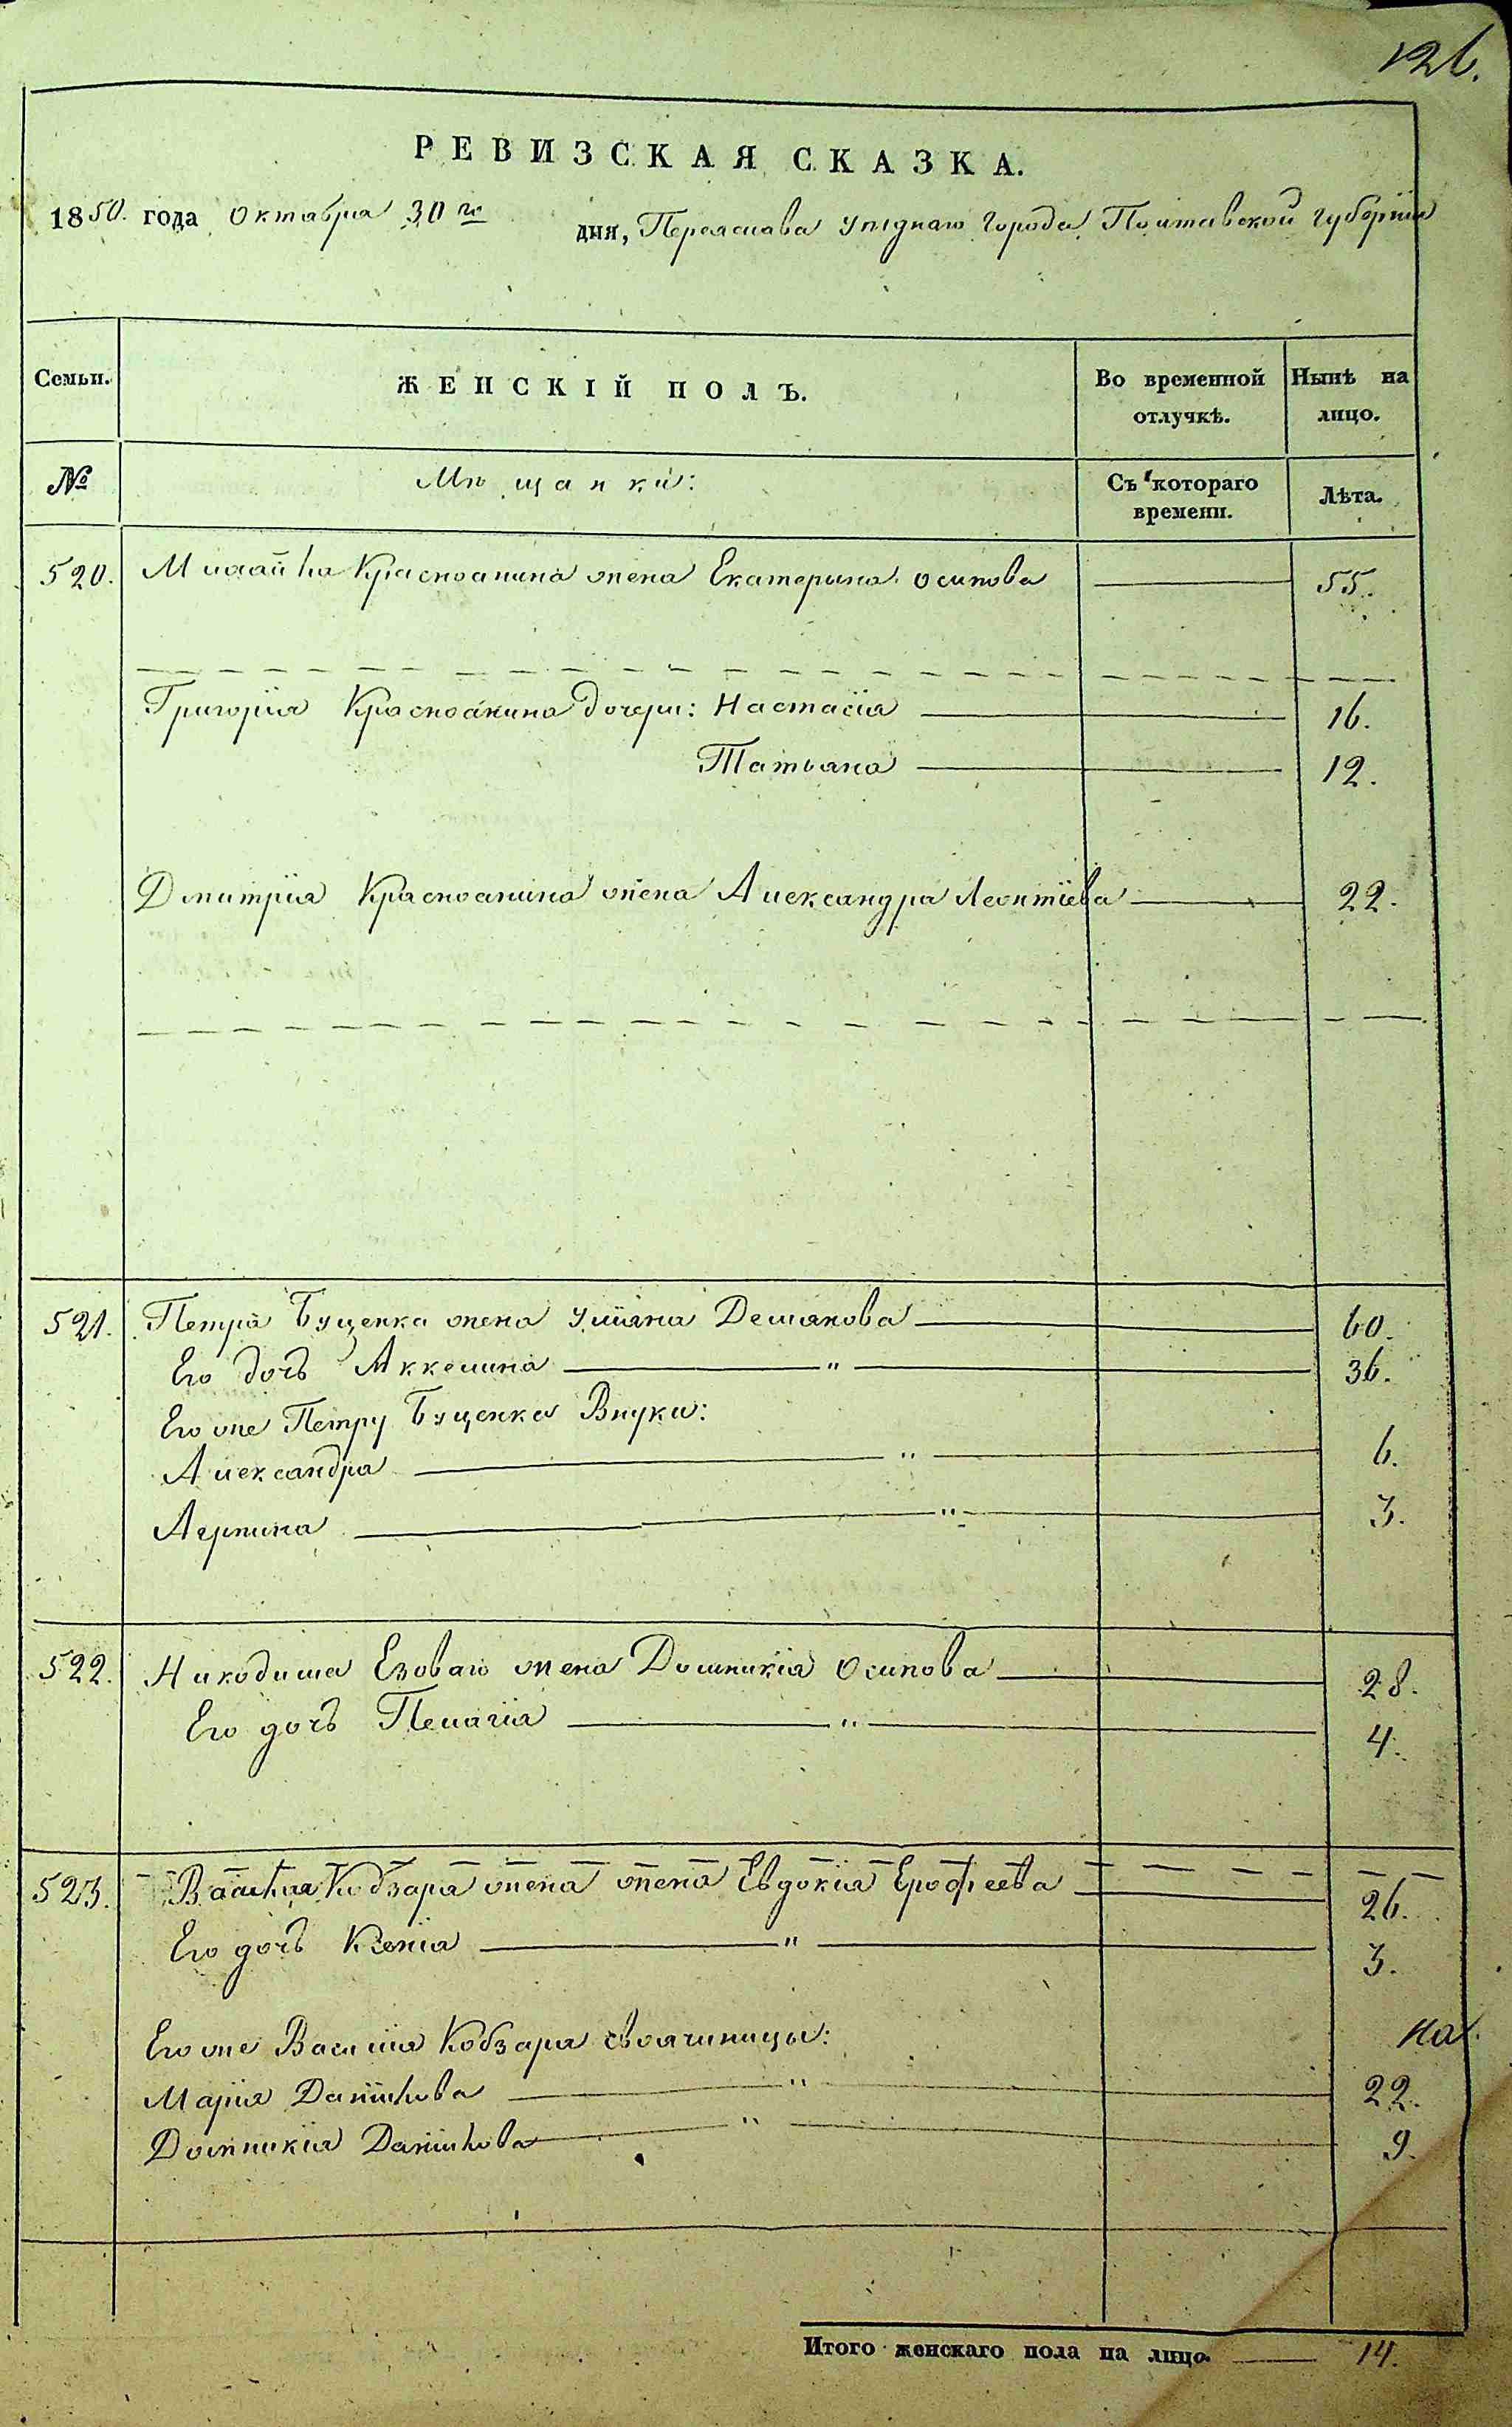 126.
РЕВИЗСКАЯ СКАЗКА.
1850. года Октября 30го дня, Переяслава уѣзднаго города Полтавской губерніи
Семьи. ЖЕНСКІЙ ПОЛЪ. Во временной отлучкѣ. Нынѣ на лицо.
№ Мѣщанки: Съ котораго времени. Лѣта.
520. Михайла жена Екатерина Осипова 55.
Григорія дочери: Настасія 16.
Татьяна 12.
Дмитрія жена Александра Леонтіева 22.
521. Петра Буценка жена Уліяна Демянова 60.
Его дочь Аккелина " 36.
Его же Петру Буценка Внуки:
Александра " 6.
" 3.
522. Никодима Езоваго жена Домникія Осипова 28.
Его дочь Пелагія " 4.
523. Василія Кобзаря жена жена Евдокія Ерофеева 26.
Его дочь Ксенія " 3.
Его же Василія Кобзаря своячиницы:
на
Марія Данілова " 22.
Домникія Данілова " 9.
Итого женскаго пола на лицо 14.